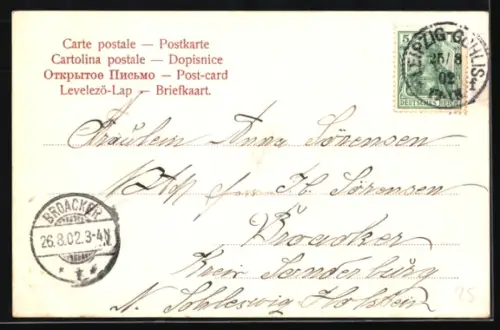 Carte postale — Postkarte
Cartolina postale — Dopisnice
Открытое Письмо — Post-card
Levelező-Lap — Briefkaart.
5
DEUTSCHES REICH
LEIPZIG-GOHLIS
25/8
02
Fräulein Anna Sörensen
Sörensen
Broacker
Kreis Sonderburg
N. Schleswig Holstein
BROACKER
26.8.02.3-4N
25